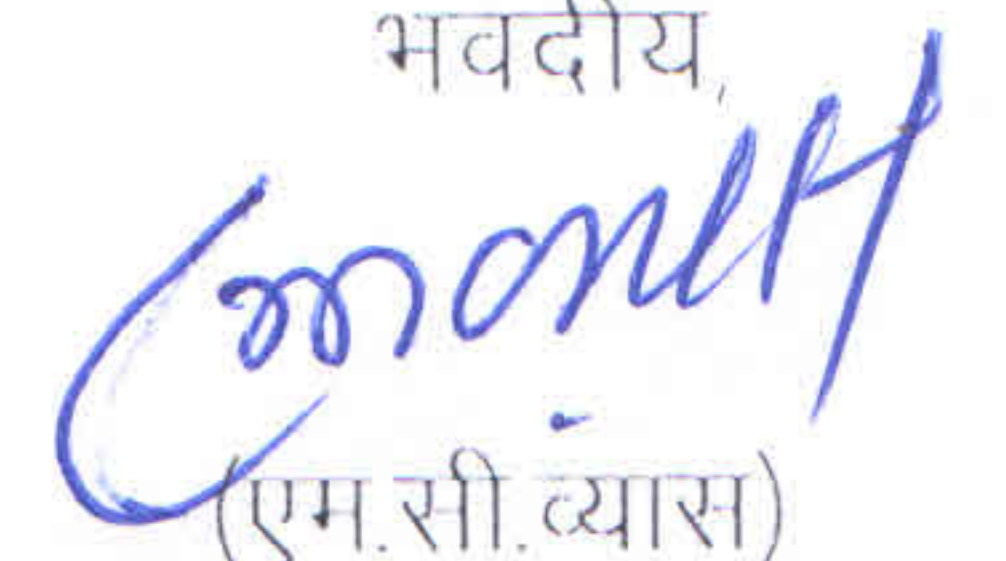 भवदीय,
(एम.सी.व्यास)